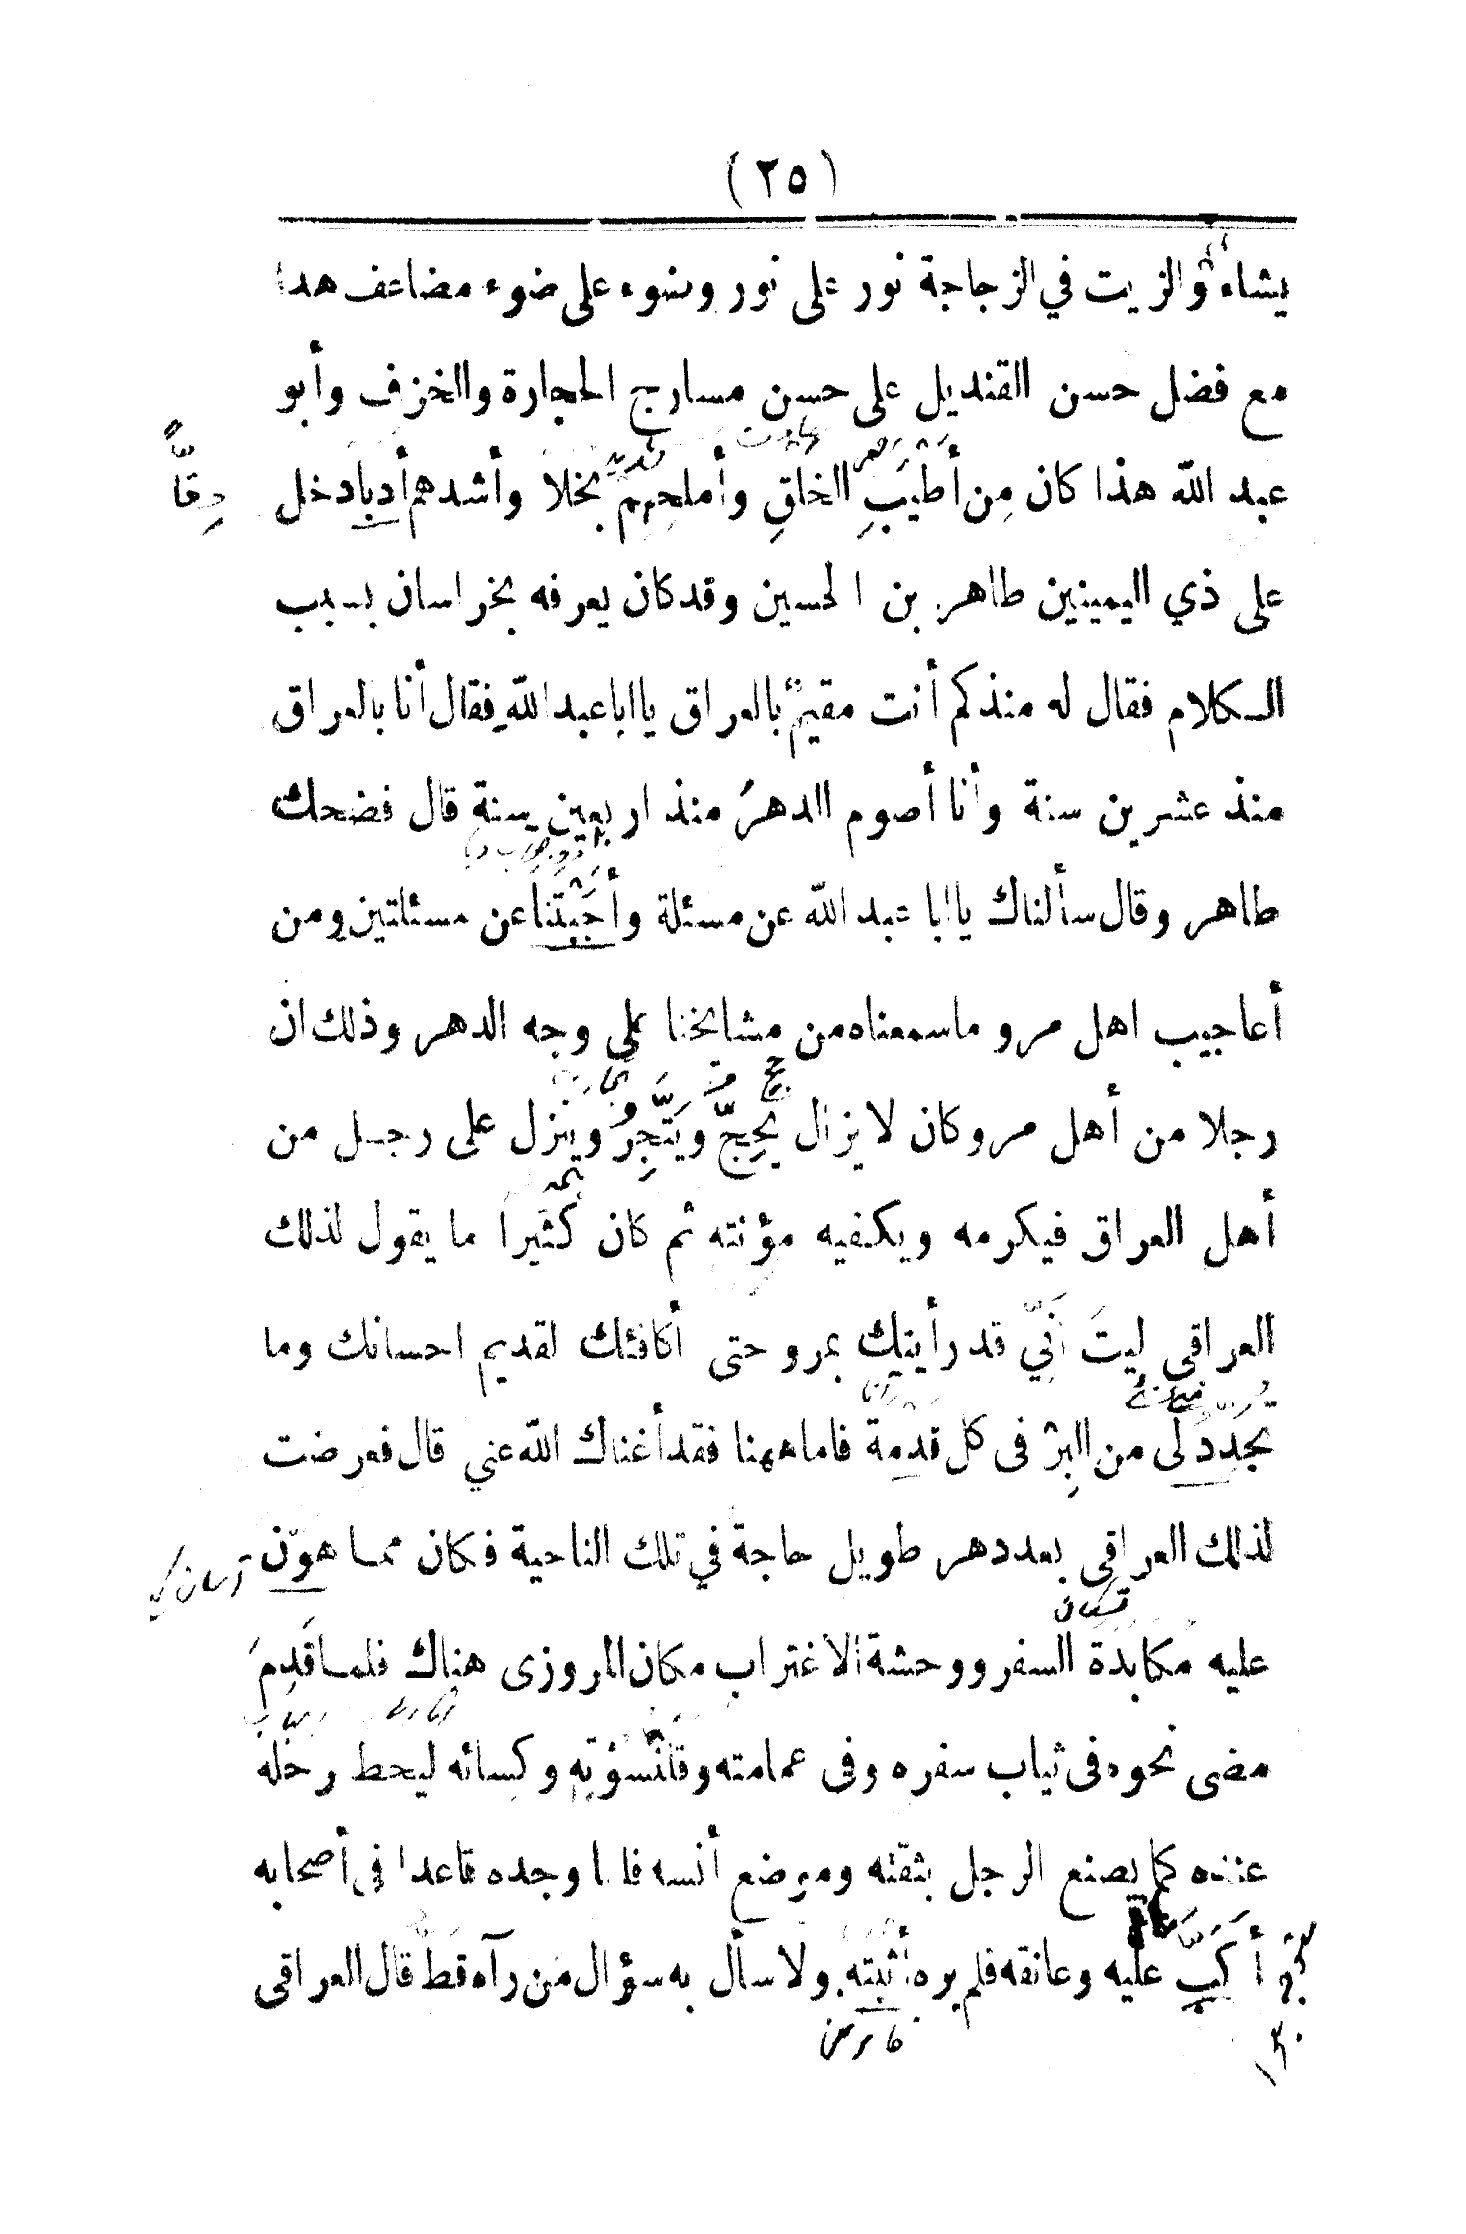 (٢٥)
يشاء والزيت في الزجاجة نور على نور وضوء على ضوء مضاعف هذا
مع فضل حسن القنديل على حسن مسارج الحجارة والخزف وأبو
عبد الله هذا كان مِن أَطْيَبِ الخلقِ وأملحِهِم بخلا وأشدهم أدبا دخل
على ذي اليمينين طاهر بن الحسين وقد كان يعرفه بخراسان بسبب
الكلام فقال له منذ كم أنت مقيمٌ بالعراق يا ابا عبد اللهِ فقال أنا بالعراق
منذ عشرين سنة وأنا أصوم الدهرُ منذ اربعين سنة قال فضحك
طاهر وقال سألناك يا ابا عبد الله عن مسئلة وأَجَبْتَنا عن مسئلتين ومن
أعاجيب اهل مرو ما سمعناه من مشايخنا على وجه الدهر وذلك ان
رجلا من أهل مرو كان لا يزال يحِجّ ويَتَّجِرُ وينزل على رجل من
أهل العراق فيكرمه ويكفيه مؤنته ثم كان كثيرا ما يقول لذلك
العراقي ليتَ أَنّي قد رأيتك بمرو حتى أكافئك لقديم احسانك وما
يجدد لى من البِرّ فى كل قدمة فاما ههنا فقد أغناك الله عني قال فعرضت
لذلك العراقي بعد دهر طويل حاجة في تلك الناحية فكان مما هوّن
عليه مكابدة السفر ووحشة الاغتراب مكان المروزى هناك فلما قَدِمَ
مضى نحوه فى ثياب سفره وفى عمامته وقَلَنْسُوَتِهِ وكسائه ليحط رحله
عنده كما يصنع الرجل بثقته وموضع أنسه فلما وجده قاعدا في أصحابه
أَكَبَّ عليه وعانقه فلم يره أثبته ولا سأل به سؤال مَن رآه قط قال العراقى